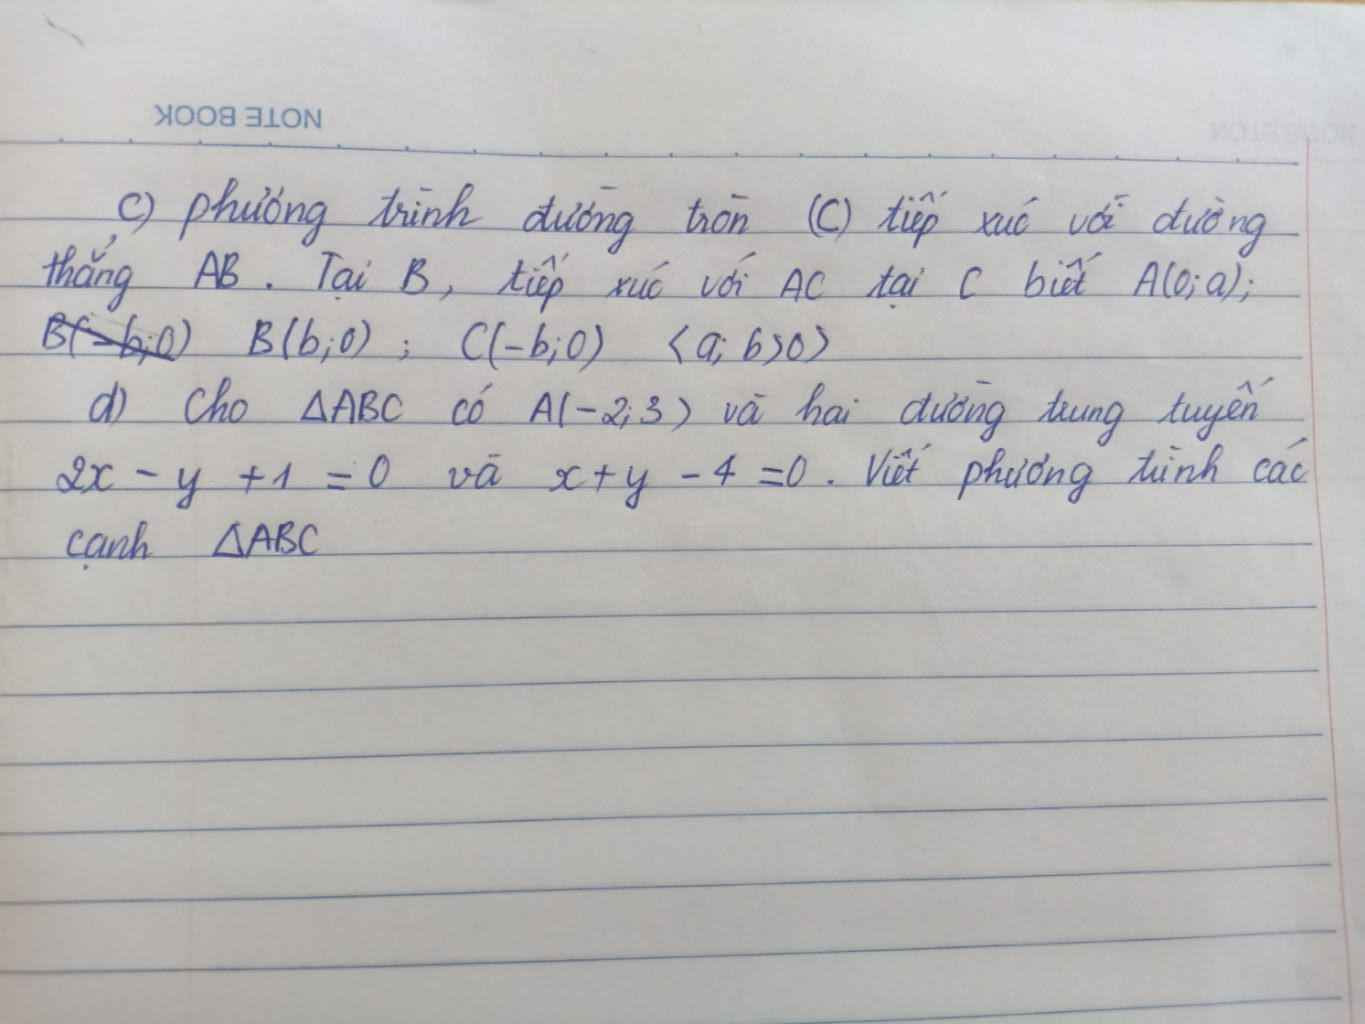 NOTE BOOK
c) phương trình đường tròn (C) tiếp xúc với đường
thẳng AB. Tại B, tiếp xúc với AC tại C biết A(0;a);
B(-b;0) B(b;0); C(-b;0) <a;b>0>
d) Cho ΔABC có A(-2;3) và hai đường trung tuyến
2x - y + 1 = 0 và x + y - 4 = 0. Viết phương trình các
cạnh ΔABC